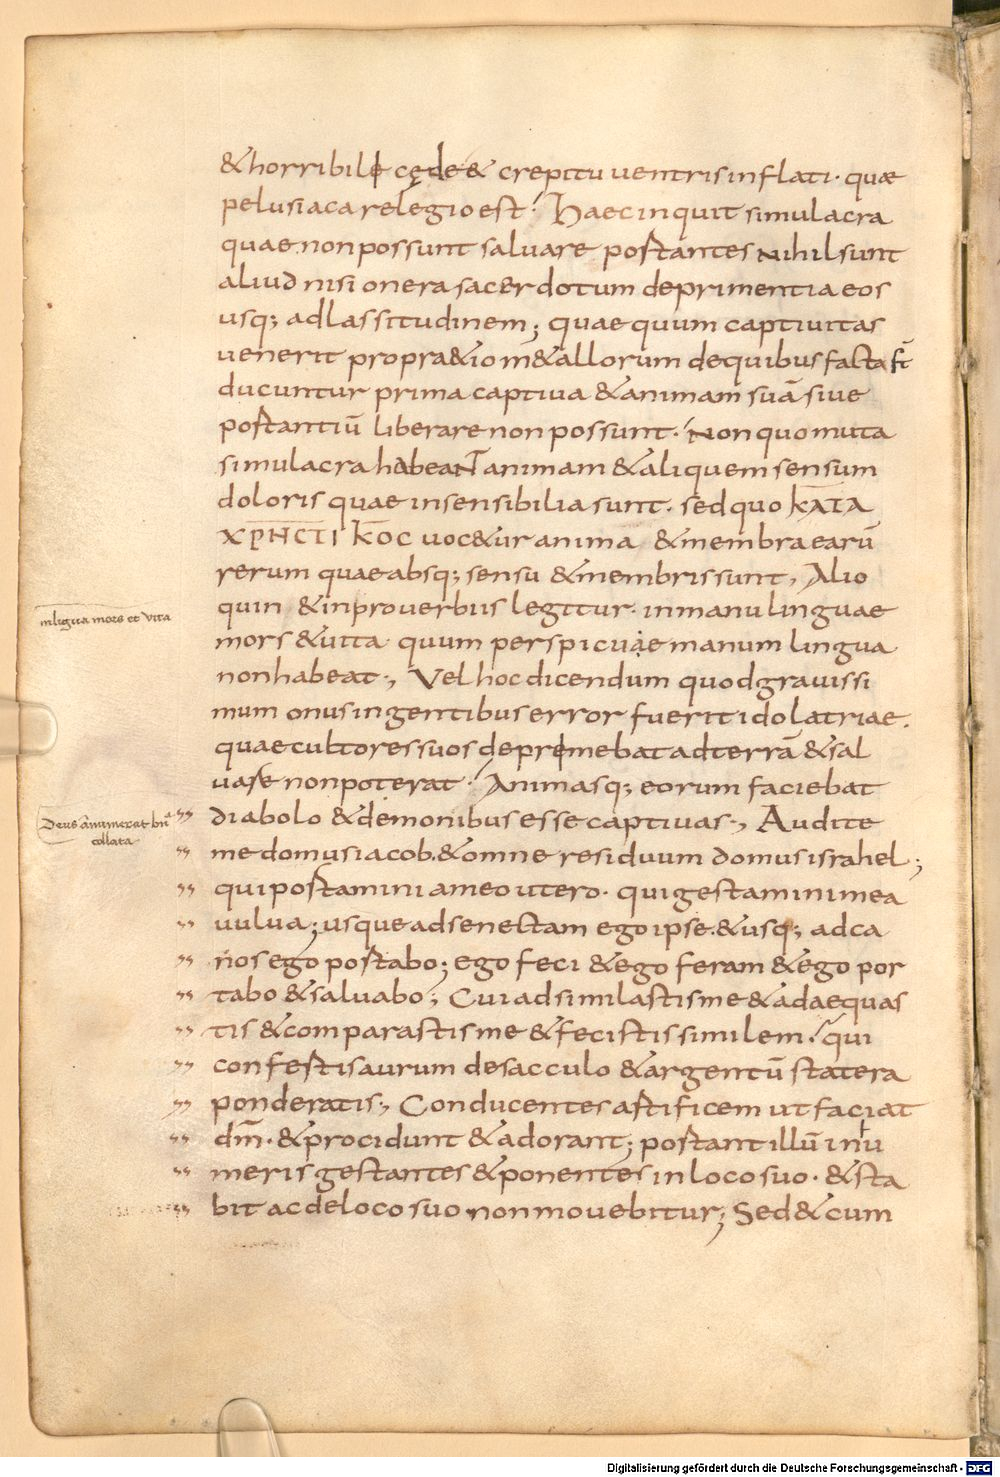 &horribile cęde& crepitu uentris inflati· quae
pelusiaca relegio est· Haec inquit simulacra
quae non possunt saluare portantes nihil sunt
aliud nisi onera sacerdotum deprimentia eos
usq; ad lassitudinem; quae quum captiuitas
uenerit propr&io m&allorum de quibus facta st̄
ducuntur prima captiua &animam suā siue
portantiū liberare non possunt· Non quo muta
simulacra habeant animam &aliquem sensum
doloris quae insensibilia sunt· sed quo ΚΑΤΑ
ΧΡΗCΤΙΚΟC uoc&ur anima &membra earū
rerum quae absq; sensu &membris sunt, Alio
quin &in prouerbiis legitur· in manu linguae
mors &uita· quum perspicuae manum lingua
non habeat·, Vel hoc dicendum quod grauissi
mum onus in gentibus error fuerit idolatriae.
quae cultores suos depremebat ad terrā &sal
uare non poterat· Animasq; eorum faciebat
diabolo &demonibus esse captiuas·, Audite
me domus iacob·&omne residuum domus israhel;
qui portamini a meo utero· qui gestamini mea
uulua; usque ad senectam ego ipse·&usq; ad ca
nos ego portabo; ego feci &ego feram &ego por
tabo &saluabo; Cui adsimilastis me &adaequas
tis &comparastis me &fecistis similem· qui
confertis aurum de sacculo &argentū statera
ponderatis·, Conducentes artificem ut faciat
dm̄· &procidunt &adorant; portant illū in hu
meris gestantes &ponentes in loco suo· &sta
bit ac de loco suo non mouebitur; Sed &cum
in ligua mors et vita
Deus
collata